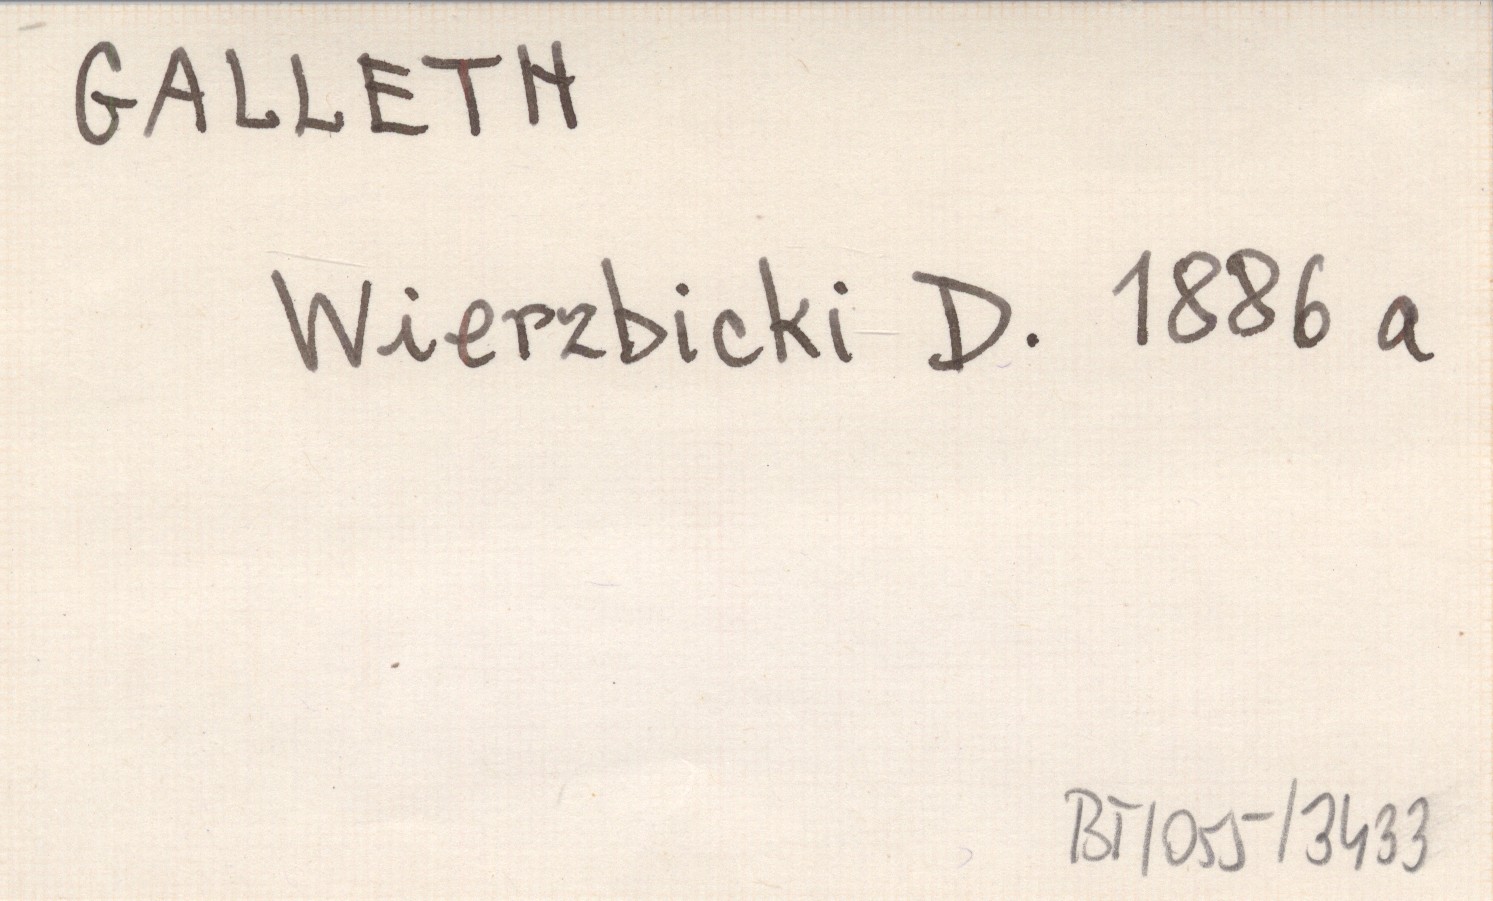 GALLETH
Wierzbicki D. 1886 a
BT/055/3433